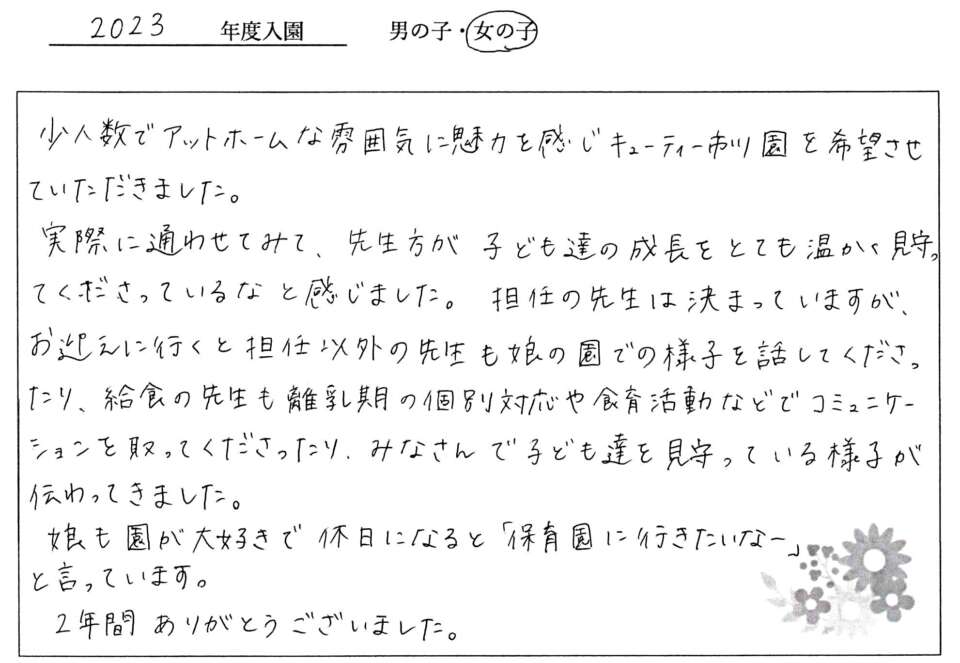 2023 年度入園 男の子・女の子
少人数でアットホームな雰囲気に魅力を感じキューティー市川園を希望させ
ていただきました。
実際に通わせてみて、先生方が子ども達の成長をとても温かく見守っ
てくださっているなと感じました。担任の先生は決まっていますが、
お迎えに行くと担任以外の先生も娘の園での様子を話してくださっ
たり、給食の先生も離乳期の個別対応や食育活動などでコミュニケー
ションを取ってくださったり、みなさんで子ども達を見守っている様子が
伝わってきました。
娘も園が大好きで休日になると「保育園に行きたいなー」
と言っています。
2年間ありがとうございました。